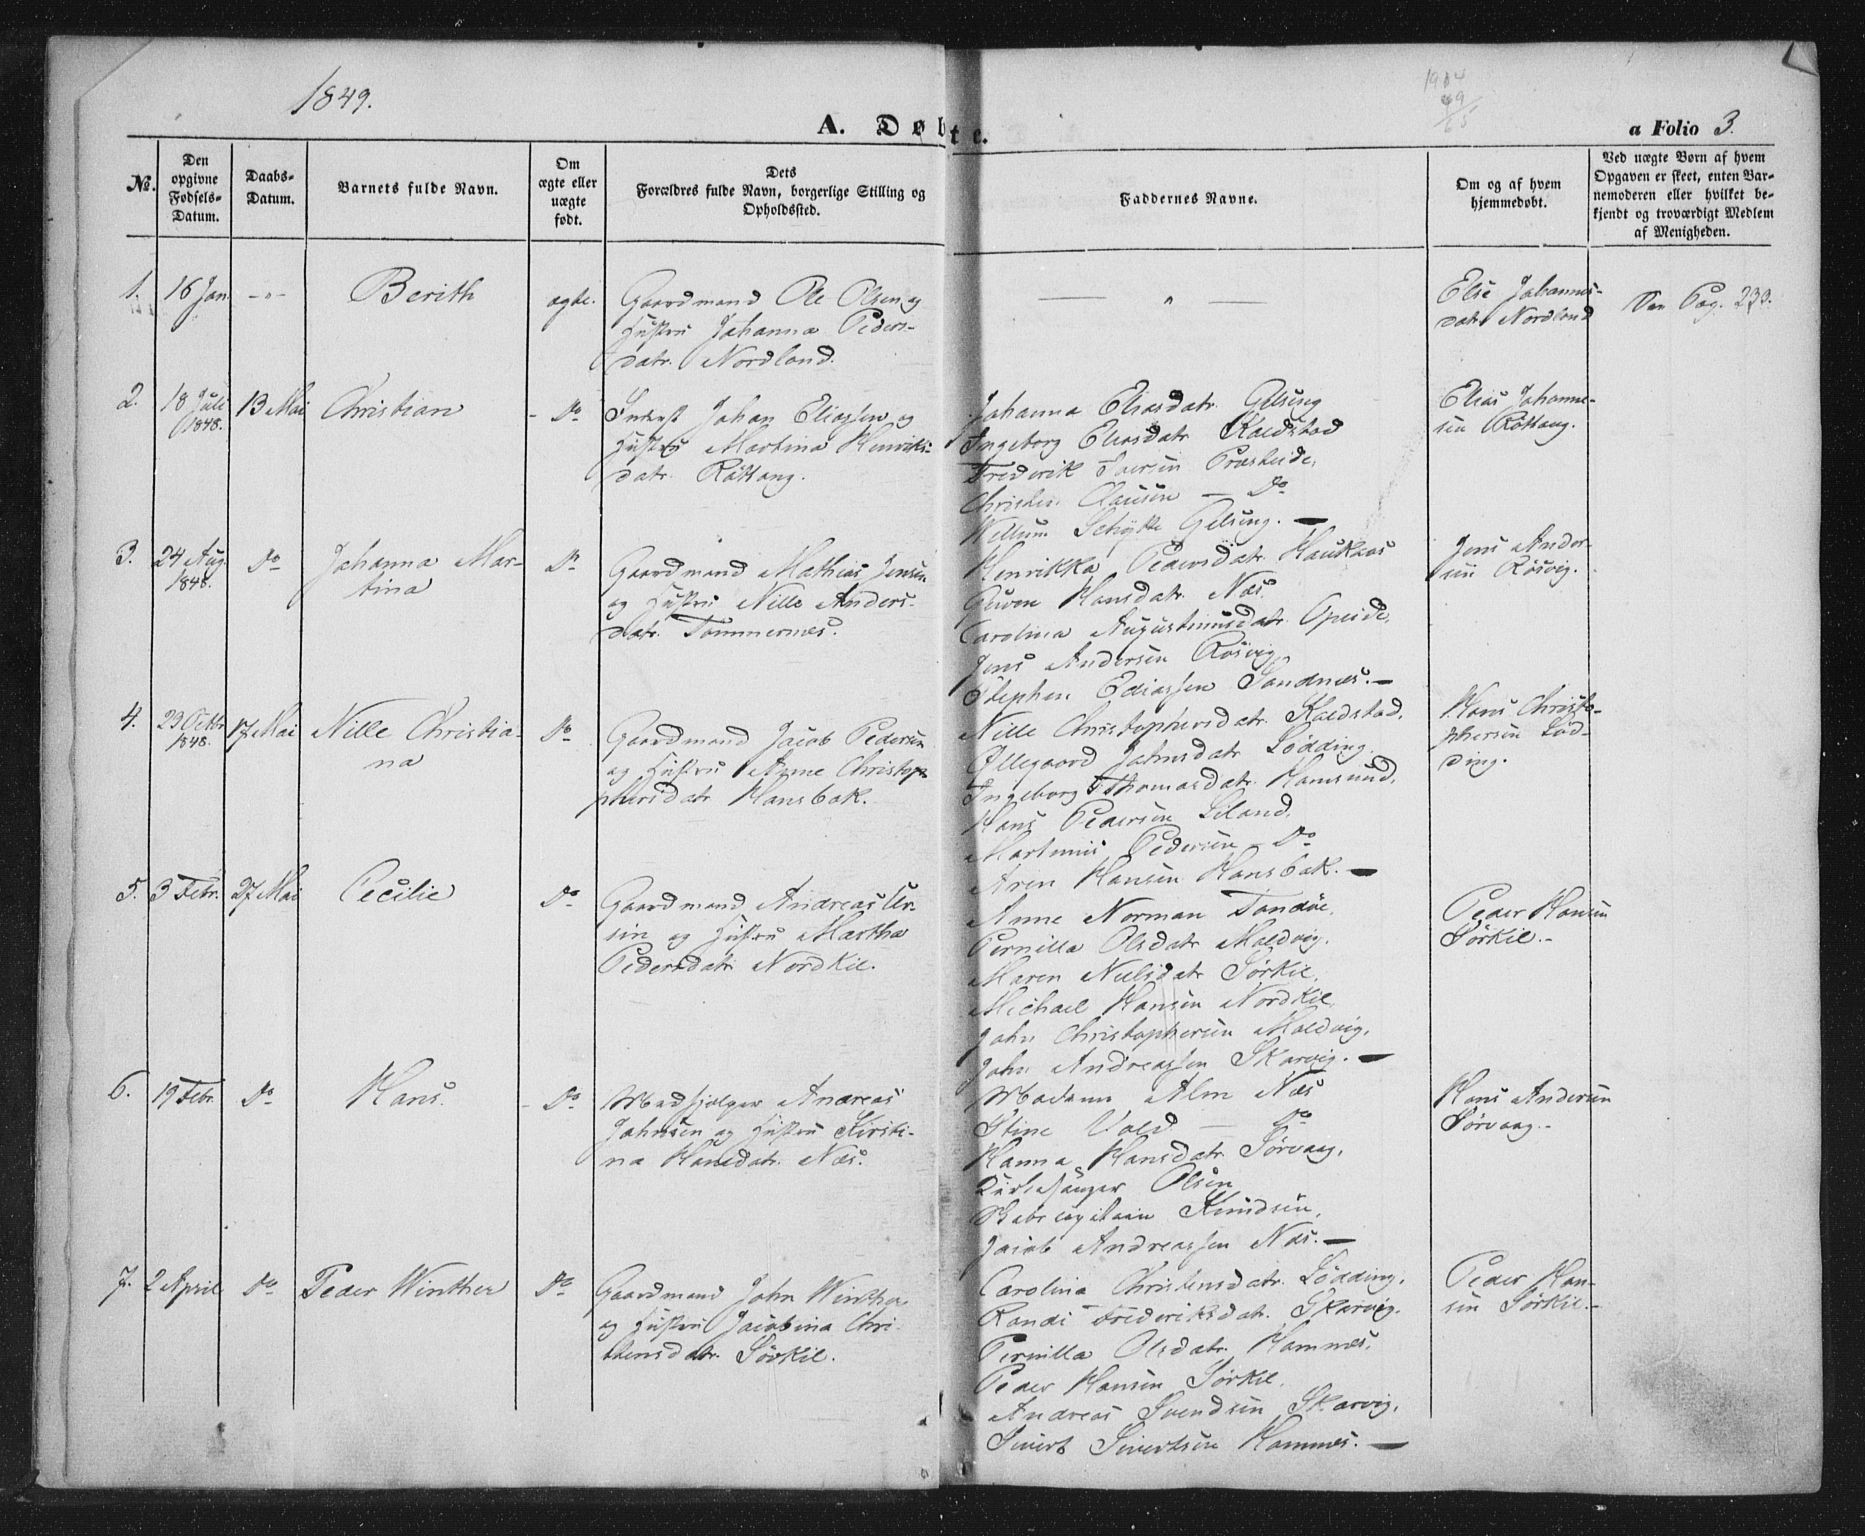 1849.
1914
49
65
A. Døbte.
a Folio 3.
No.
Den opgivne Fødsels-Datum.
Daabs-Datum.
Barnets fulde Navn.
Om ægte eller uægte født.
Dets Forældres fulde Navn, borgerlige Stilling og Opholdssted.
Faddernes Navne.
Om og af hvem hjemmedøbt.
Ved uægte Børn af hvem Opgaven er skeet, enten Barnemoderen eller hvilket bekjendt og troværdigt Medlem af Menigheden.
1. 16 Jan. -"- Berith ægte.
Gaardmand Ole Olsen og
Hustru Johanna Peders-
datr. Nordland.
— " —
Else Johannes-
datr Nordland
Pag. 233.
2. 18 Juli 1848. 13 Mai Christian Do
Inderst Johan Eliassen og
Hustru Martina Henriks-
datr. Röttang.
Johanna Eliasdatr. Gilsing
Ingeborg Eliasdatr. Kaldstad
Frederik Iversen Presteide,
Christen Clausen — Do
Willum Schytte Gilsing. —
Elias Johanne-
sen Röttang.
3. 24 Aug. 1848. Do Johanna Mar-
tina Do
Gaardmand Mathias Jensen
og Hustru Nille Anders-
datr. Tømmernes.
Henrikka Pedersdatr. Haukaas
Guren Hansdatr. Næs.
Carolina Augustinusdatr. Opeide,
Jens Andersen Rösvig
Stephen Eliassen Sandnæs. —
Jens Ander-
sen Rösvig.
4. 23 Octbr 1848. 17 Mai Nille Christia-
na Do
Gaardmand Jacob Pedersen
og Hustru Anne Christop-
phersdatr Hansbak.
Nille Christophersdatr. Kaldstad,
Øllegaard Johnsdatr Lødding.
Ingeborg Thomasdatr. Hamsund,
Hans Pedersen Liland,
Martinus Pedersen Do
Aren Hansen Hansbak. —
Hans Christo-
phersen Lød-
ding.
5. 3 Febr. 27 Mai Cecilie Do
Gaardmand Andreas Iver-
sen og Hustru Martha
Pedersdatr Nordkil.
Anne Norman Tandöe,
Pernilla Olsdatr Maldvig.
Maren Nilsdatr Sørkil,
Michael Hansen Nordkil,
John Christophersen Maldvig,
John Andreassen Skarvig. —
Peder Hansen
Sørkil.-
6. 19 Febr. Do Hans. Do
Medhjelper Andreas
Johnsen og Hustru Kirsti-
na Hansdatr. Næs.
Madam Alm Næs
Stine Vold — Do
Hanna Hansdatr. Sørvaag,
Kirkesanger Olsen
Knudsen,
Jacob Andreassen Næs. —
Hans Andersen
Sørvaag.-
7. 2 April Do Peder Winther Do
Gaardmand John Winther
og Hustru Jacobina Chri-
stensdatr. Sørkil.
Carolina Christensdatr. Lødding,
Randi Frederiksdatr. Skarvig.
Pernilla Olsdatr. Hamnes,
Peder Hansen Sørkil,
Andreas Svendsen Skarvig,
Sivert Sivertsen Hamnes. —
Peder Han-
sen Sørkil.-